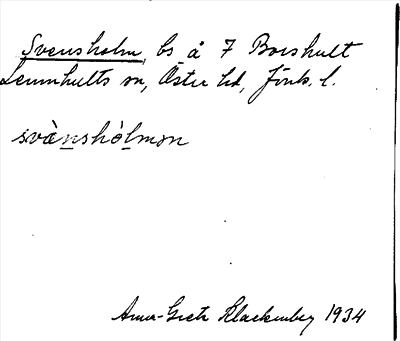 Svensholm, bs å 7 Boshult
Lemnhults sn, Öster hd, Jönk. l.
svànshòlmən
Anna-Greta Klackenberg 1934